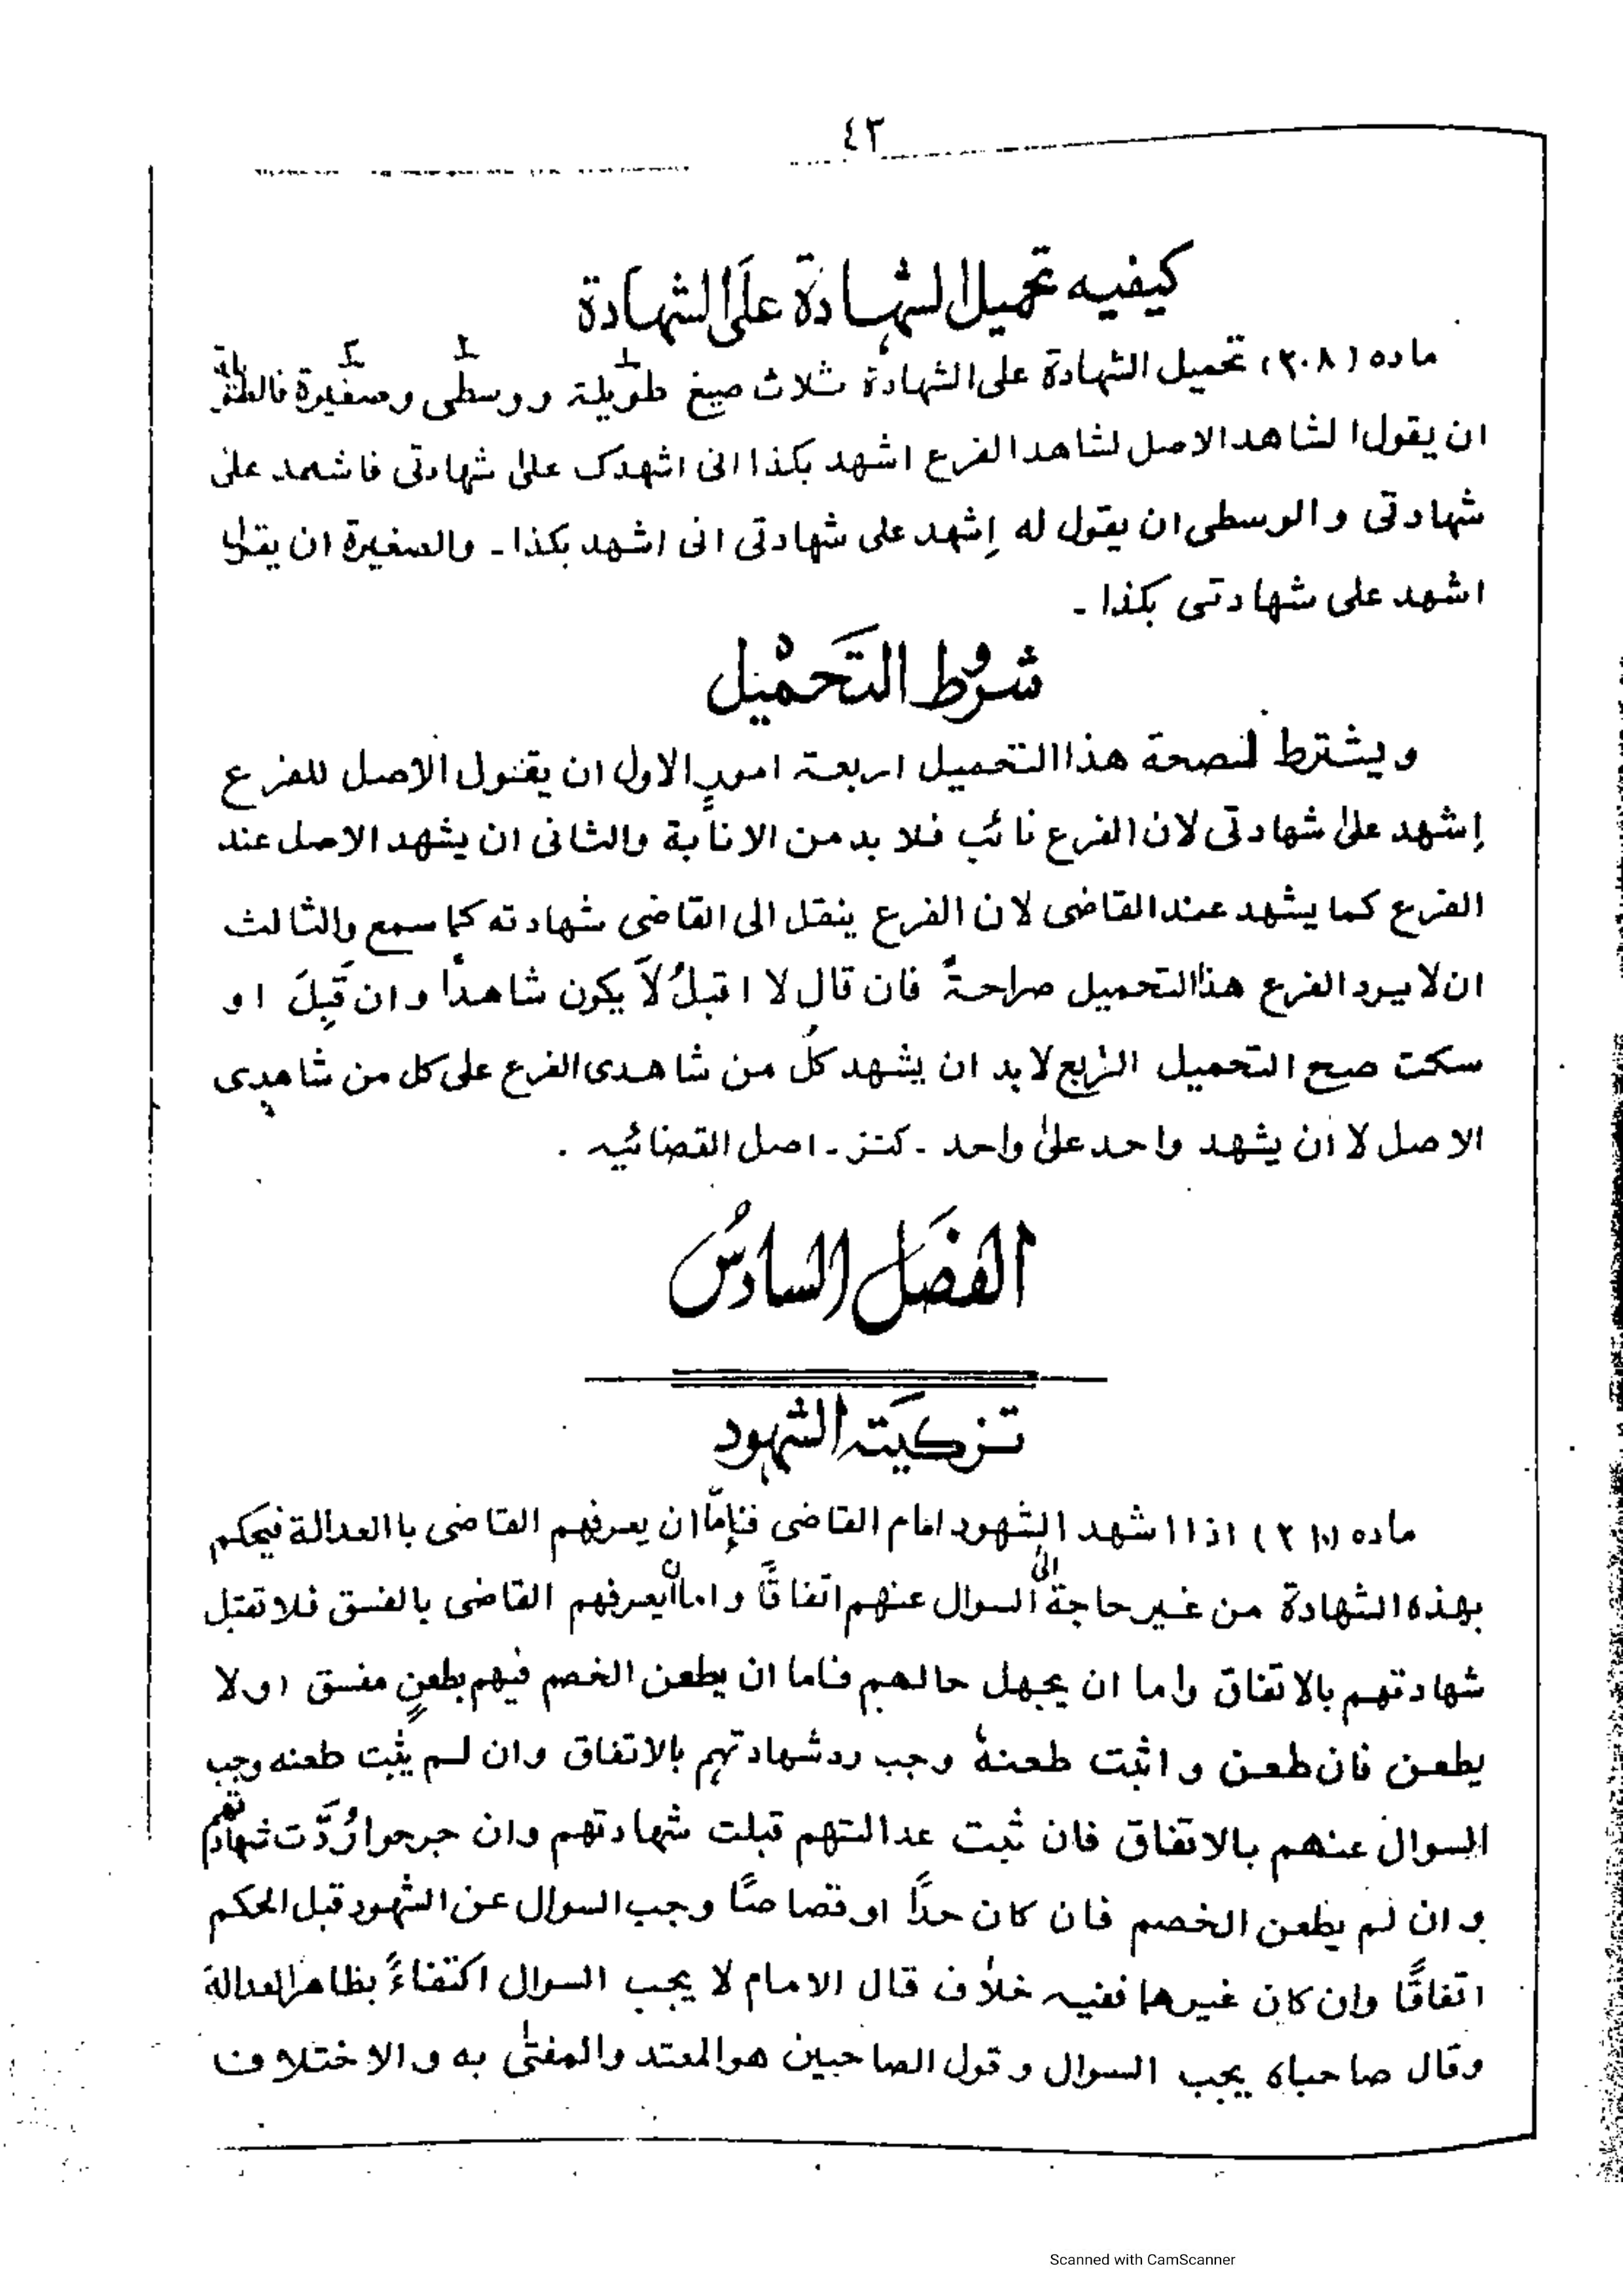 ٤٣
كيفيه تحميل الشهادة على الشهادة
ماده (٢٠٨) تحميل الشهادة على الشهادة ثلاث صيغ طويلة ووسطى وصغيرة فالطويلة
ان يقول الشاهد الاصل لشاهد الفرع اشهد بكذا انى اشهدك علىٰ شهادتى فاشهد على
شهادتى والوسطى ان يقول له إشهد على شهادتى انى اشهد بكذا ـ والصغيرة ان يقول
اشهد على شهادتى بكذا ـ
شروُط التَحمْيل
ويشترط لصحة هذا التحميل اربعة امورٍ الاول ان يقول الاصل للفرع
إشهد علىٰ شهادتى لان الفرع نائب فلا بد من الانابة والثانى ان يشهد الاصل عند
الفرع كما يشهد عند القاضى لان الفرع ينقل الى القاضى شهادته كما سمع والثالث
ان لا يرد الفرع هذا التحميل صراحةً فان قال لا اقبلُ لاَ يكون شاهداً وان قَبِلَ او
سكت صح التحميل الرابع لا بد ان يشهد كلُ من شاهدى الفرع على كل من شاهدى
الاصل لا ان يشهد واحد علىٰ واحد ـ كنز ـ اصل القضائيه .
الفصَل السادسُ
تزكيَته الشهود
ماده (٢١٠) اذا اشهد الشهود امام القاضى فإمّا ان يعرفهم القاضى باالعدالة فيحكم
بهذه الشهادة من غير حاجة الى السوال عنهم اتفاقًا واما ان يعرفهم القاضى بالفسق فلا تقبل
شهادتهم بالاتفاق واما ان يجهل حالهم فاما ان يطعن الخصم فيهم بطعنٍ مفسق اولا
يطعن فان طعن واثبت طعنهٗ وجب رد شهادتهم بالاتفاق وان لم يثبت طعنه وجب
السوال عنهم بالاتفاق فان ثبت عدالتهم قبلت شهادتهم وان جرحوا رُدَّت شهادتهم
وان لم يطعن الخصم فان كان حدًّا او قصاصًا وجب السوال عن الشهود قبل الحكم
اتفاقًا وان كان غيرهما ففيه خلاف قال الامام لا يجب السوال اكتفاءً بظاهر العدالة
وقال صاحباه يجب السوال وقول الصاحبين هو المعتد والمفتىٰ به والاختلاف
Scanned with CamScanner